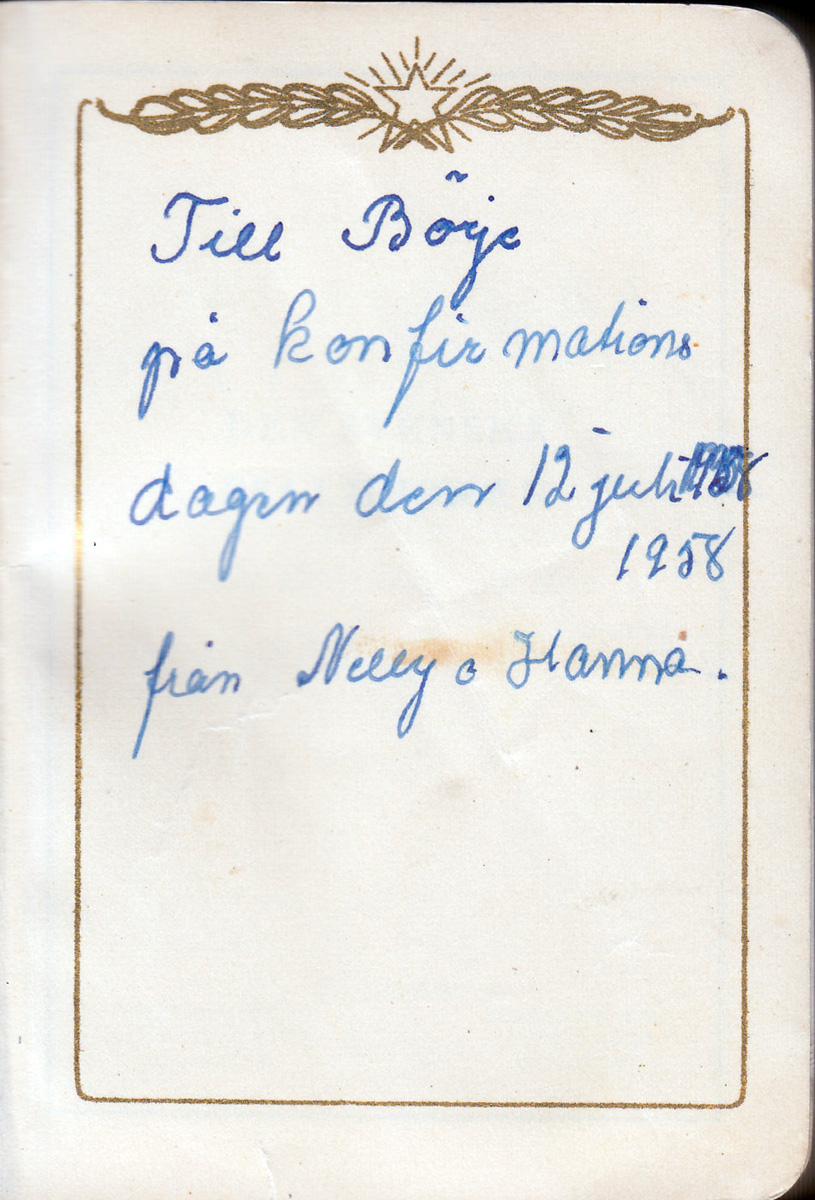 Till Börje
på konfirmations
dagen den 12 juli
1958
från Nelly o Hanna.